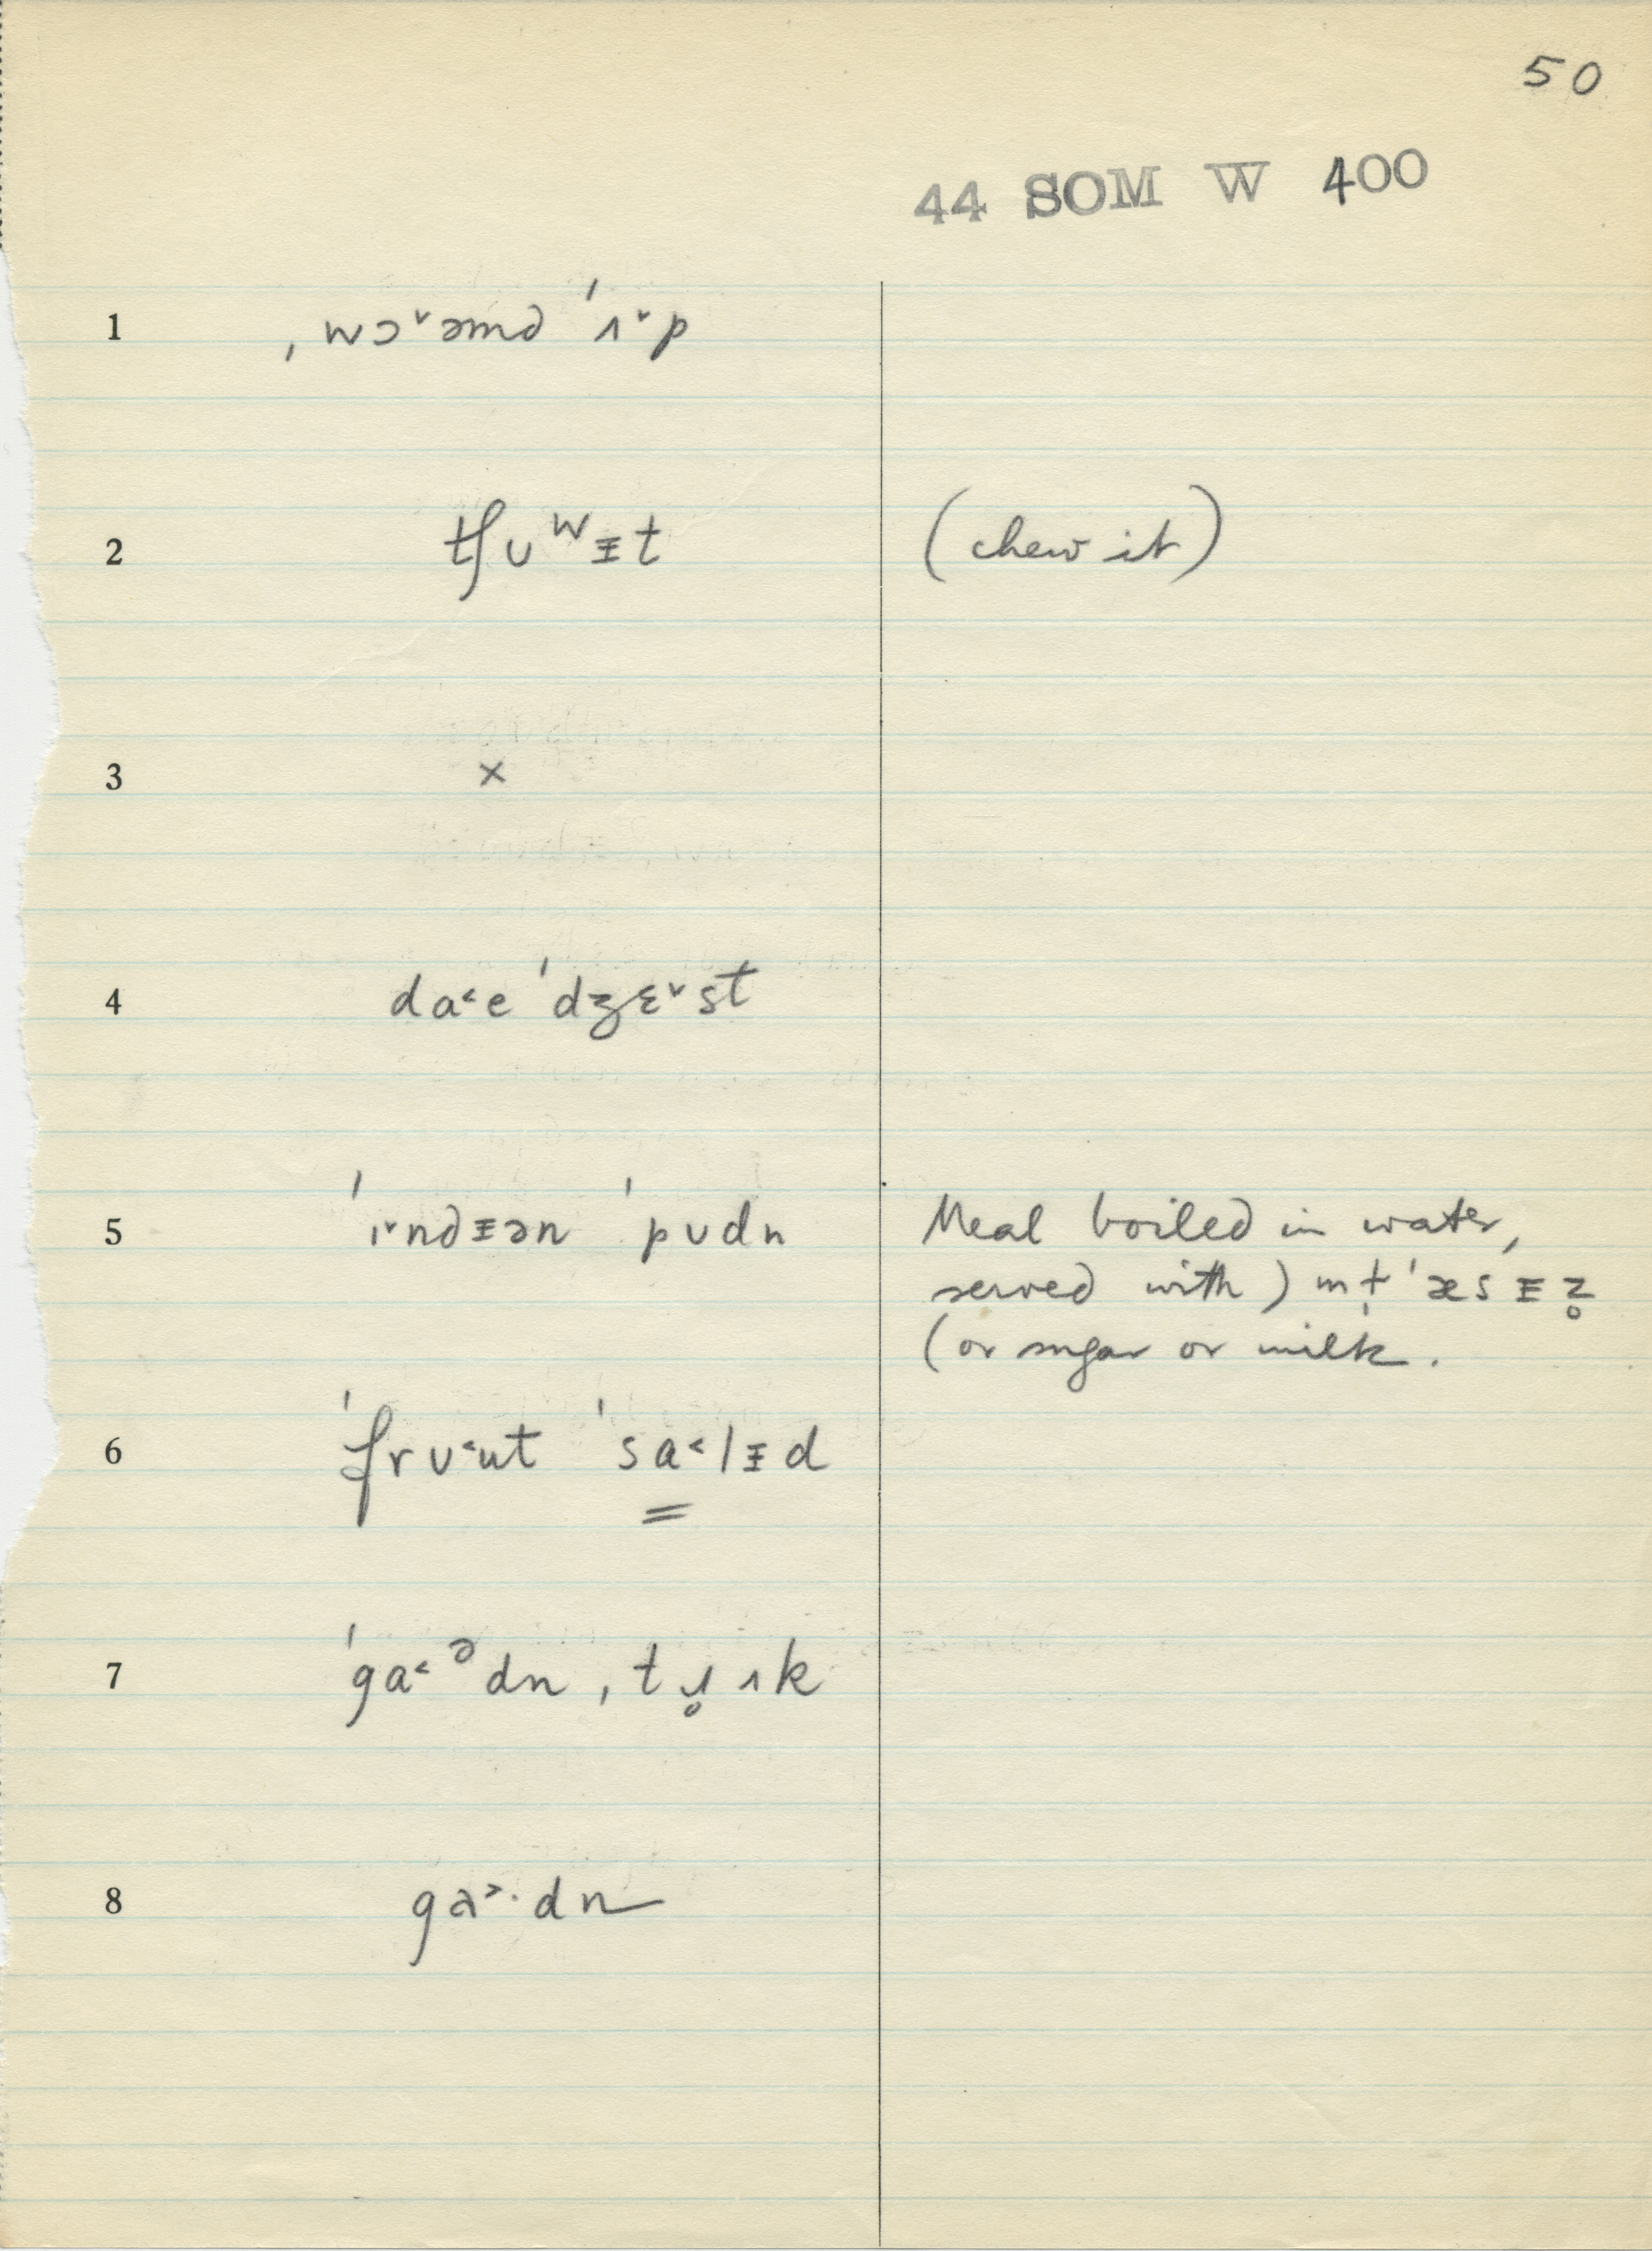 50
44 SOM W 400
1 ˌwɔ˅əmd ˈʌ˅p
2 tʃᴜʷᵻt (chew it)
3 ×
4 da˂e ˈdʒɛ˅st
5 ˈɪ˅ndᵻən ˈpᴜdn Meal boiled in water,
served with) m ț ˈæsᵻz̥
(or sugar or milk.
6 ˈfrᴜ˂ut ˈsa˂lᵻd
7 ˈga˂ᵊdn ˌtɹ̥ʌk
8 ga˃·dn